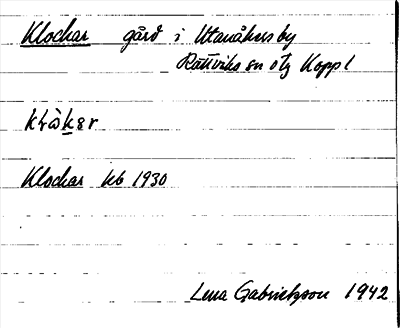 Klockar gård i Utanåkers by
Rättviks sn o tg Koppl
Klockar kb 1930
Lena Gabrielsson 1942